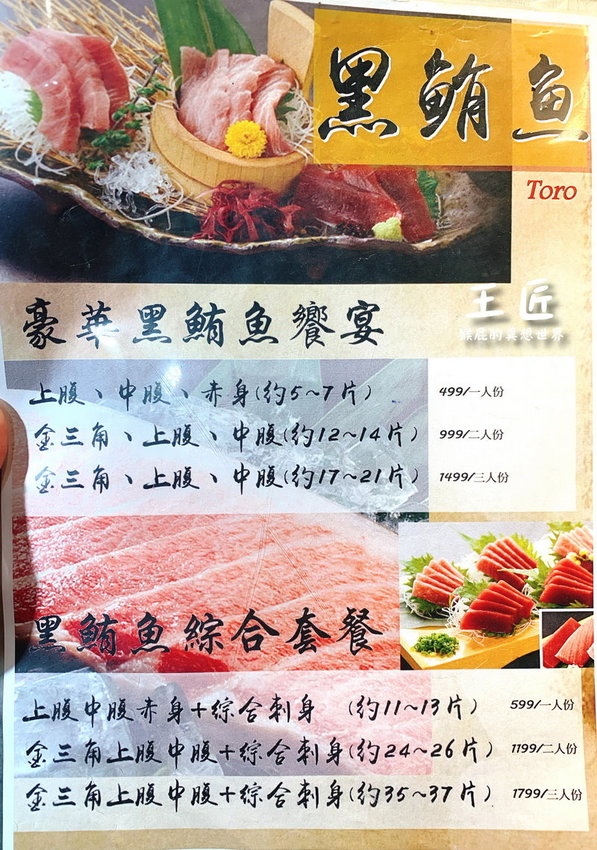 黑鮪魚
Toro
王匠
猴屁的異想世界
豪華黑鮪魚饗宴
上腹、中腹、赤身(約5~7片) 499/一人份
金三角、上腹、中腹(約12~14片) 999/二人份
金三角、上腹、中腹(約17~21片) 1499/三人份
黑鮪魚綜合套餐
上腹中腹赤身+綜合刺身 (約11~13片) 599/一人份
金三角上腹中腹+綜合刺身(約24~26片) 1199/二人份
金三角上腹中腹+綜合刺身(約35~37片) 1799/三人份